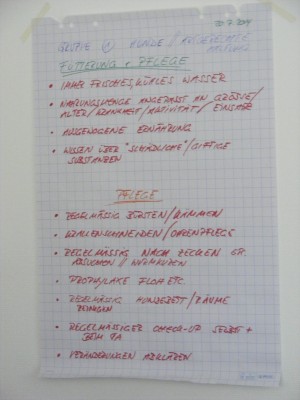 20.7.2014
GRUPPE ① HUNDE / ARTGERECHTE
HALTUNG
FÜTTERUNG + PFLEGE
• IMMER FRISCHES, KÜHLES WASSER
• NAHRUNGSMENGE ANGEPASST AN GRÖSSE/
ALTER/KRANKHEIT/AKTIVITÄT/EINSATZ
• AUSGEWOGENE ERNÄHRUNG
• WISSEN ÜBER "SCHÄDLICHE"/GIFTIGE
SUBSTANZEN
PFLEGE
• REGELMÄSSIG BÜRSTEN/KÄMMEN
• KRALLENSCHNEIDEN/OHRENPFLEGE
• REGELMÄSSIG NACH ZECKEN
ABSUCHEN // WURMKUREN
• PROPHYLAXE FLOH ETC.
• REGELMÄSSIG HUNDEBETT/RÄUME
REINIGEN
• REGELMÄSSIGER CHECK-UP SELBST +
BEIM TA
• VERÄNDERUNGEN ABKLÄREN